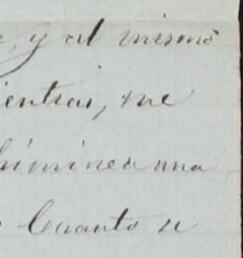 y al mismo
ientras, me
una
Cuanto se